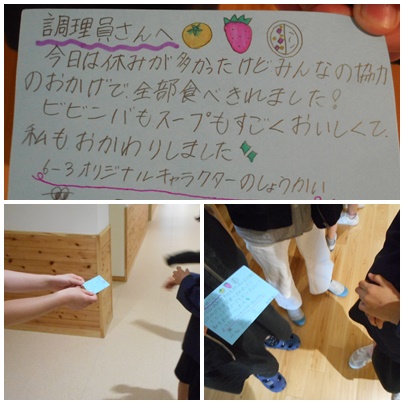 調理員さんへ
今日は休みが多かったけどみんなの協力
のおかげで、全部食べきれました!
ビビンバもスープもすごくおいしくて、
私もおかわりしました
6-3オリジナルキャラクターのしょうかい